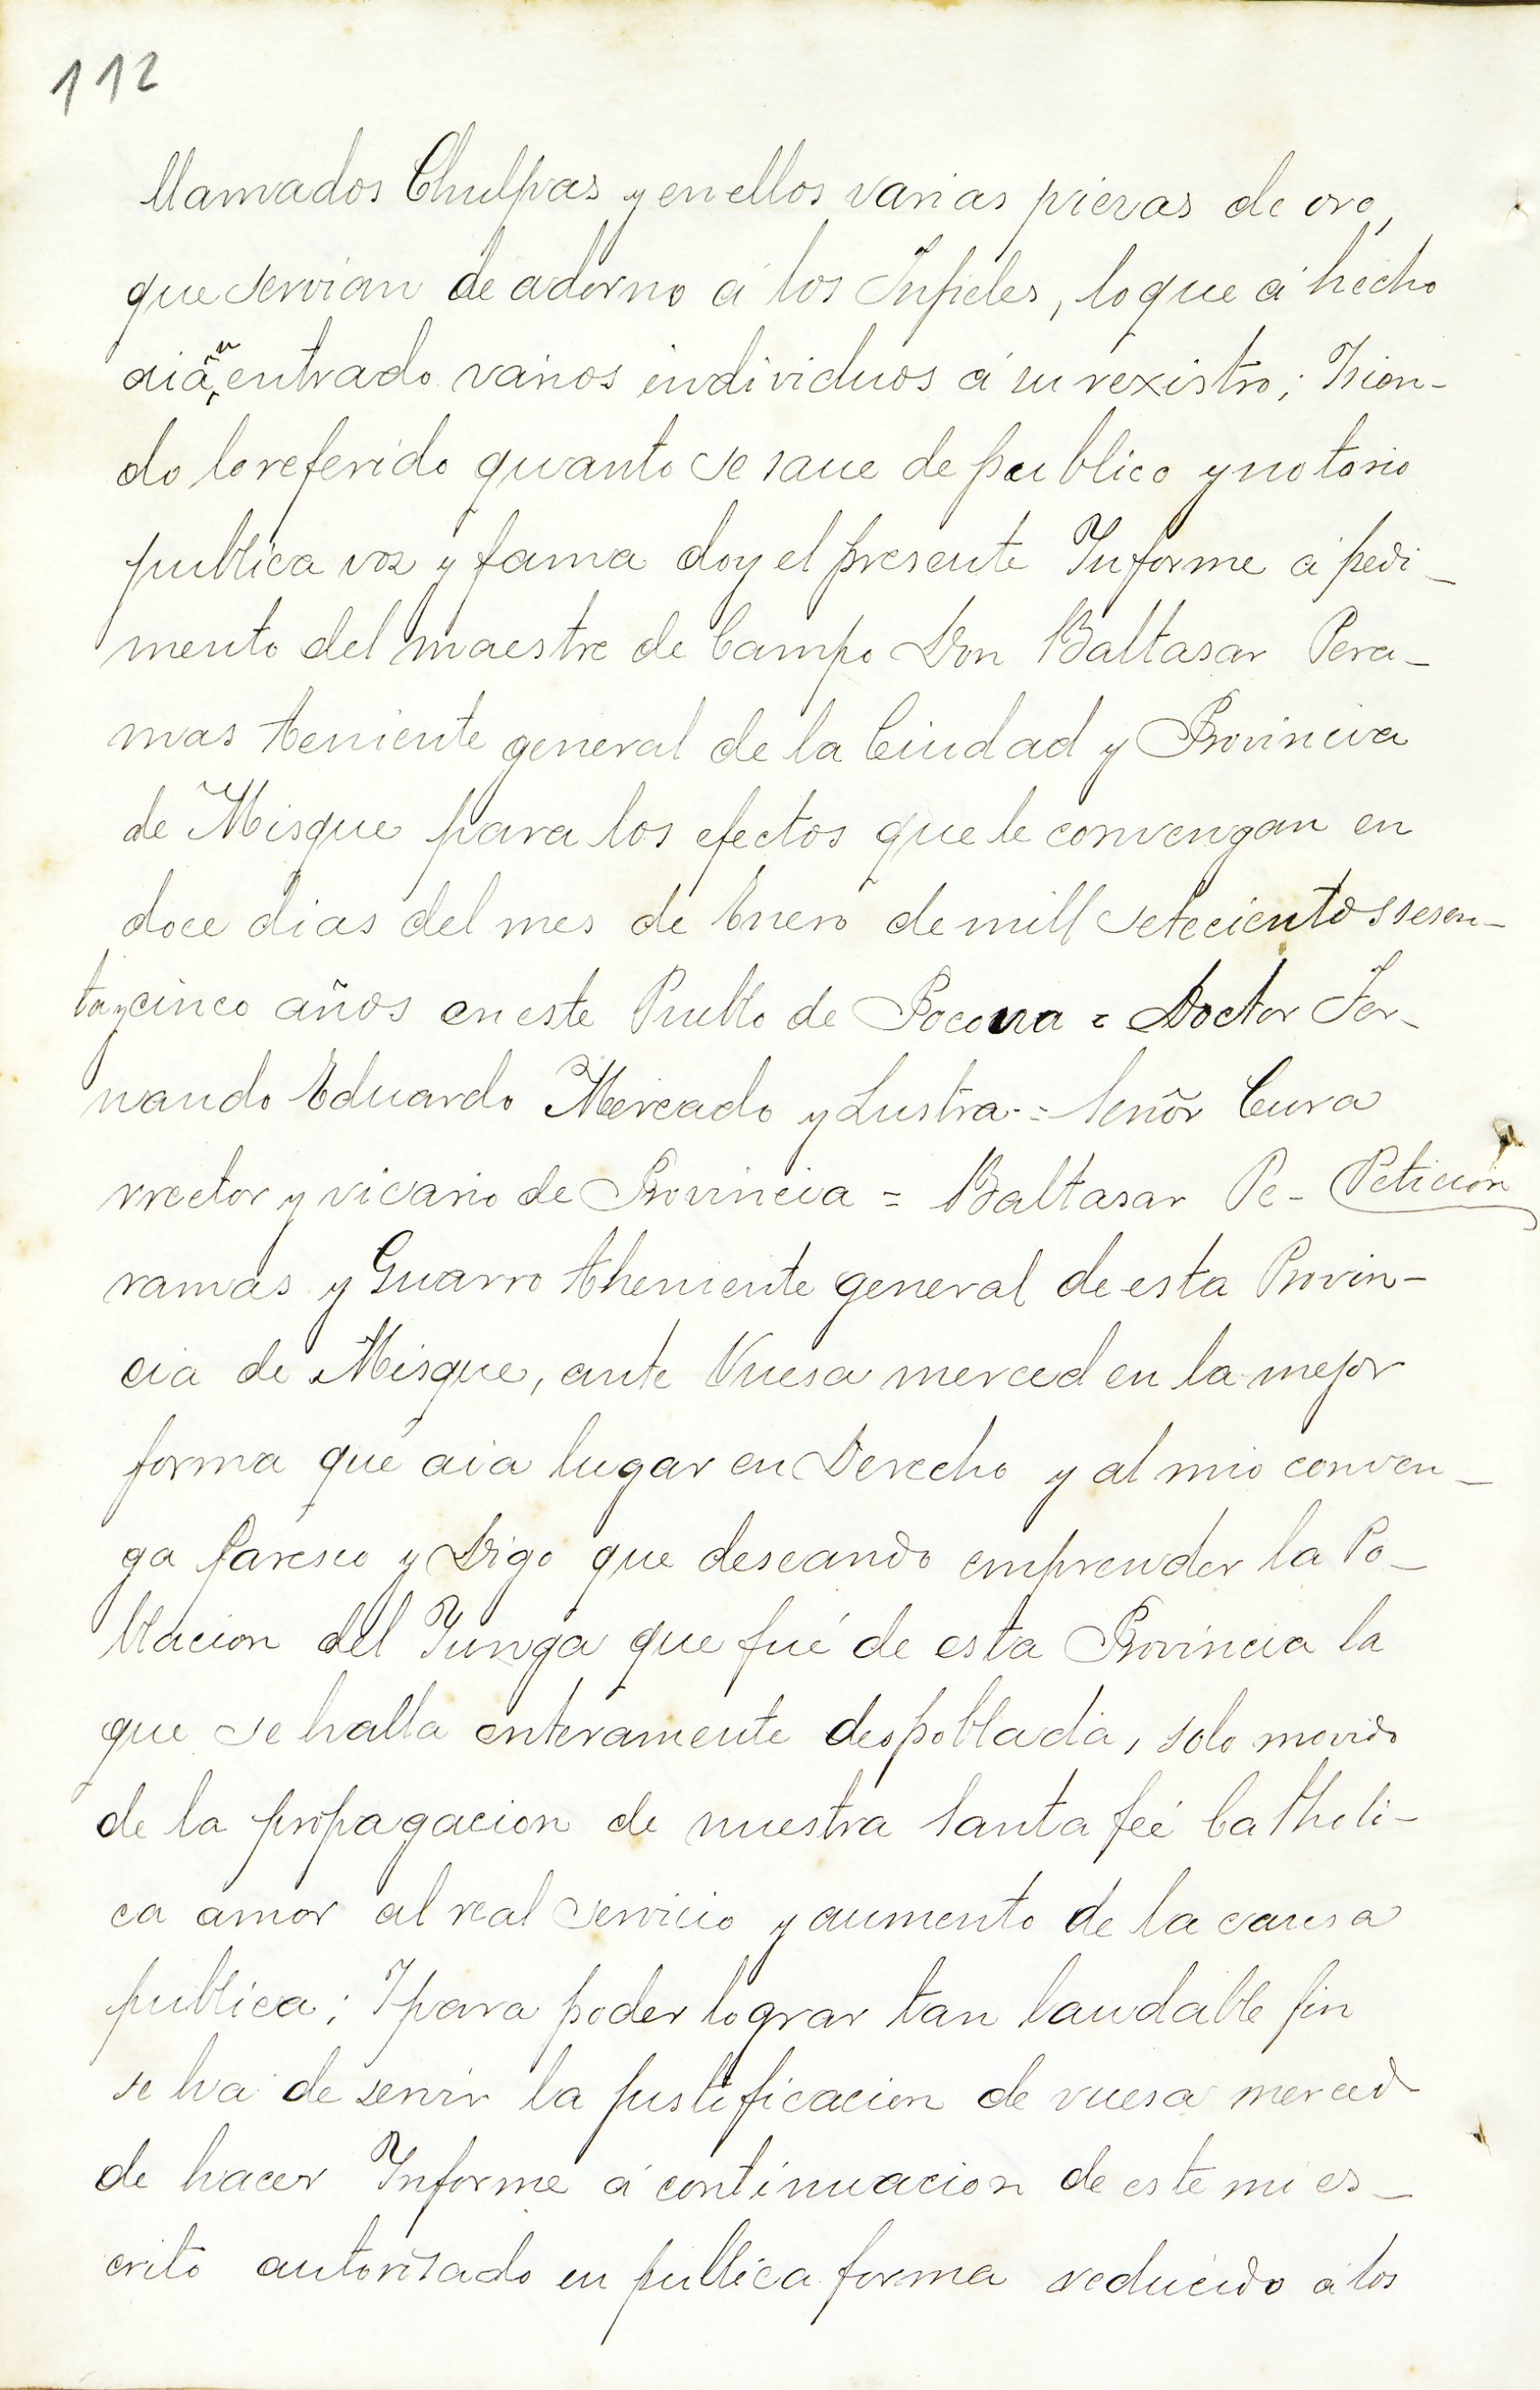 112
llamados Chulpas y en ellos varias piezas de oro,
que servian de adorno á los Infieles, lo que á hecho
aian entrado varios individuos á su rexistro; Y sien-
do lo referido quanto se saue de publico y notorio
publica voz y fama doy el presente Informe á pedi-
mento del maestre de Campo Don Baltasar Pera-
mas teniente general de la Ciudad y Provincia
de Misque para los efectos que le convengan en
doce dias del mes de Enero de mill setecientos sesen-
ta y cinco años en este Pueblo de Pocona = Doctor Fer-
nando Eduardo Mercado y Lustra = Señor Cura
rrector y vicario de Provincia = Baltasar Pe- Petición
ramas y Guarro theniente general de esta Provin-
cia de Misque, ante Vuesa merced en la mejor
forma que aia lugar en Derecho y al mio conven-
ga paresco y Digo que deseando emprender la Po-
blacion del Yunga que fué de esta Provincia la
que se halla enteramente despoblada, solo movido
de la propagacion de nuestra Santa feé Catholi-
ca amor al real servicio y aumento de la causa
publica; Y para poder lograr tan laudable fin
se ha de servir la justificacion de vuesa merced
de hacer Informe á continuacion de este mi es-
crito autorisado en publica forma reducido á los